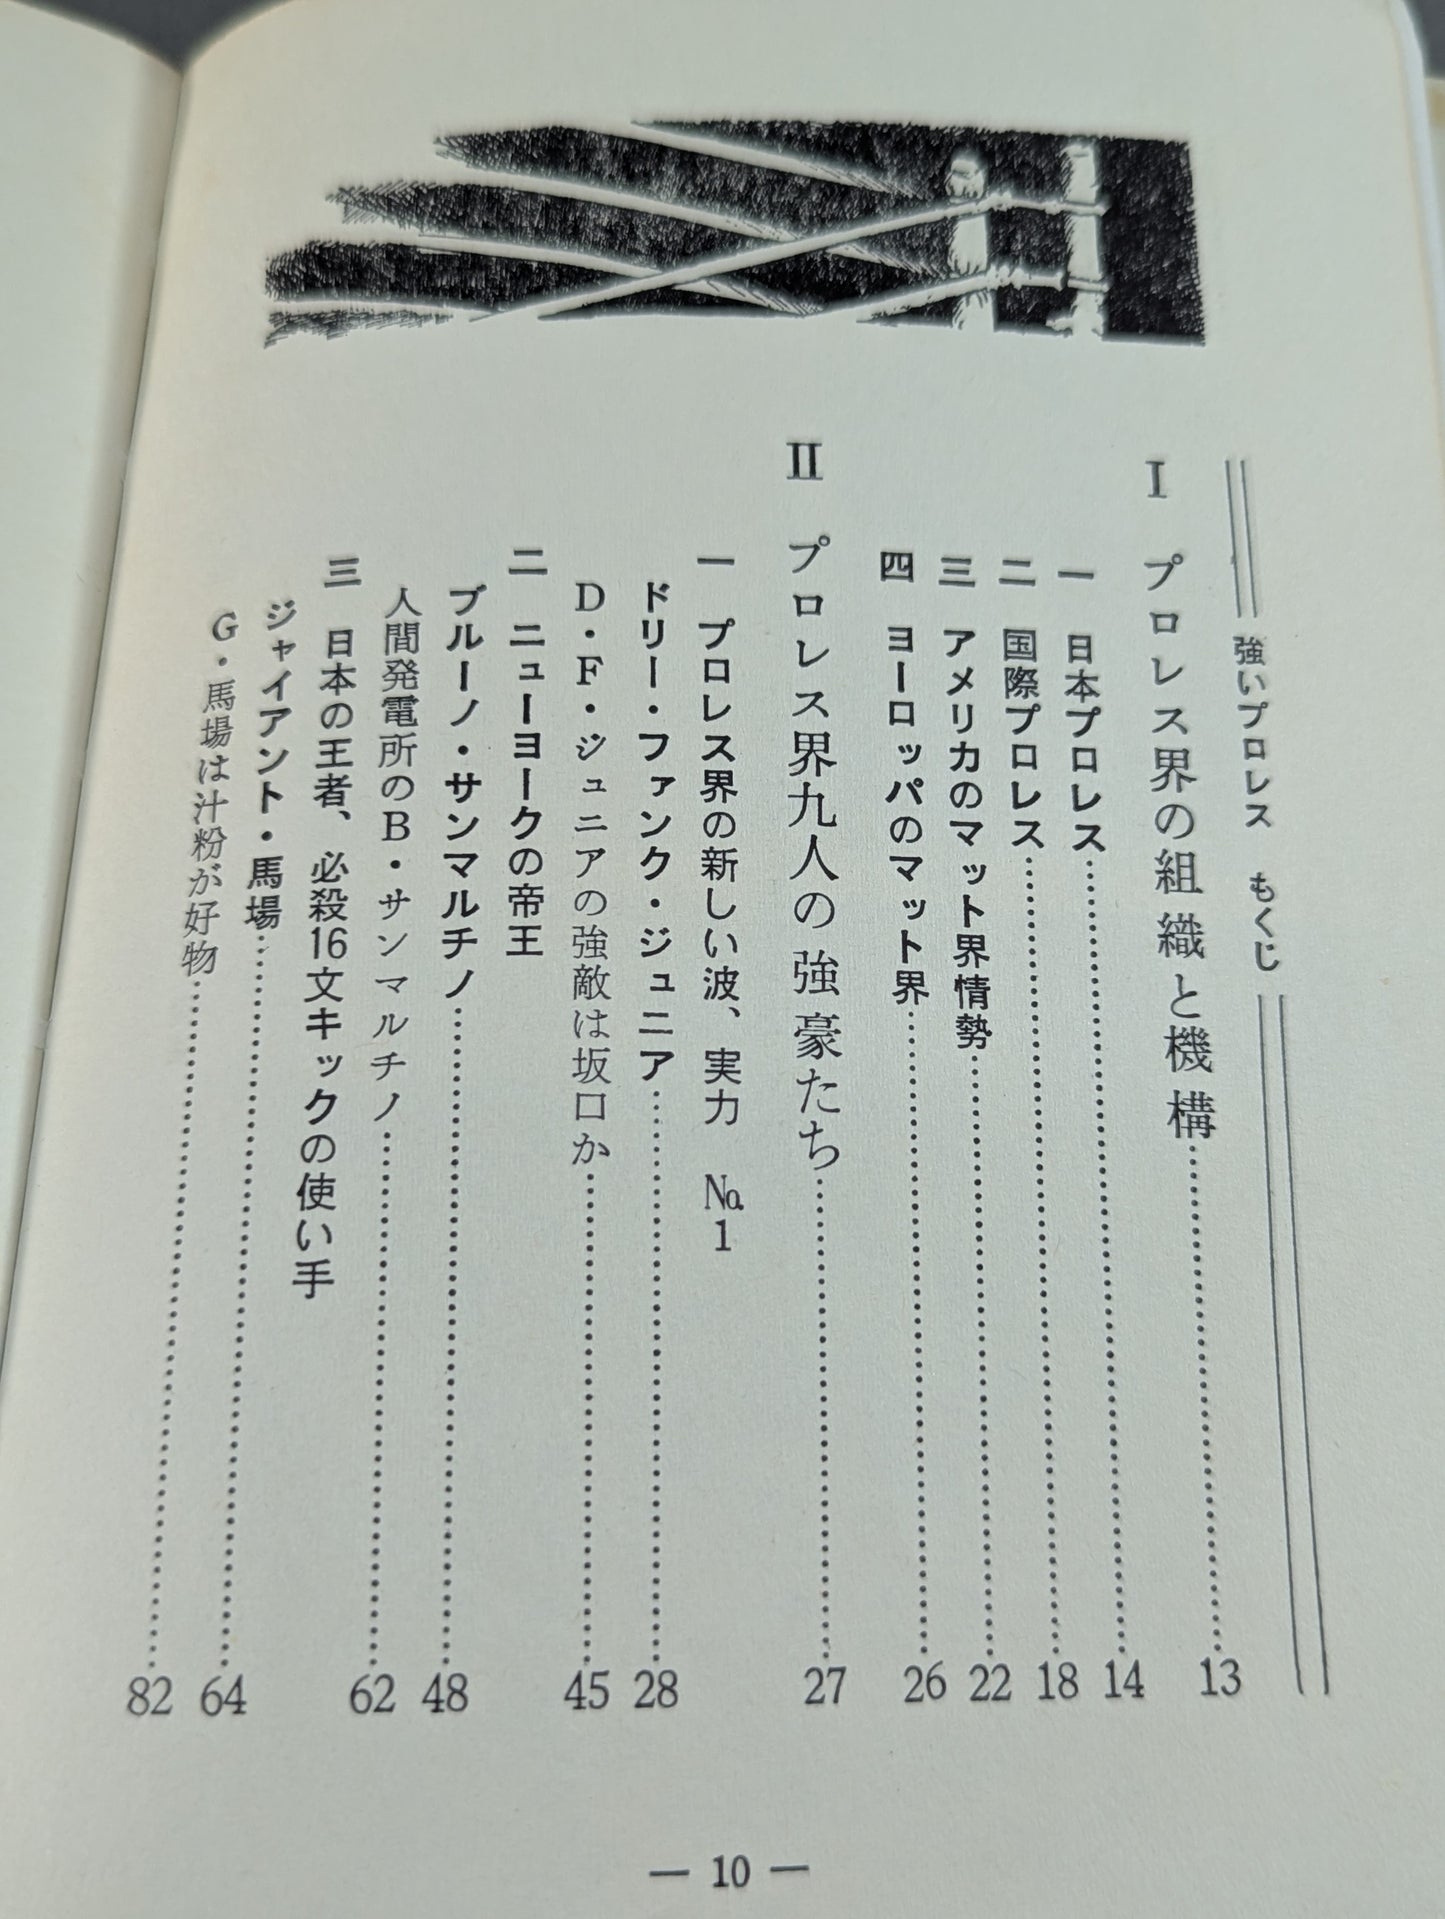 強いプロレス もくじ
I プロレス界の組織と機構……13
一 日本プロレス……14
二 国際プロレス……18
三 アメリカのマット界情勢……22
四 ヨーロッパのマット界……26
II プロレス界九人の強豪たち……27
一 プロレス界の新しい波、実力 No.1
ドリー・ファンク・ジュニア……28
D・F・ジュニアの強敵は坂口か……45
二 ニューヨークの帝王
ブルーノ・サンマルチノ……48
人間発電所のB・サンマルチノ……62
三 日本の王者、必殺16文キックの使い手
ジャイアント・馬場……64
G・馬場は汁粉が好物……82
— 10 —